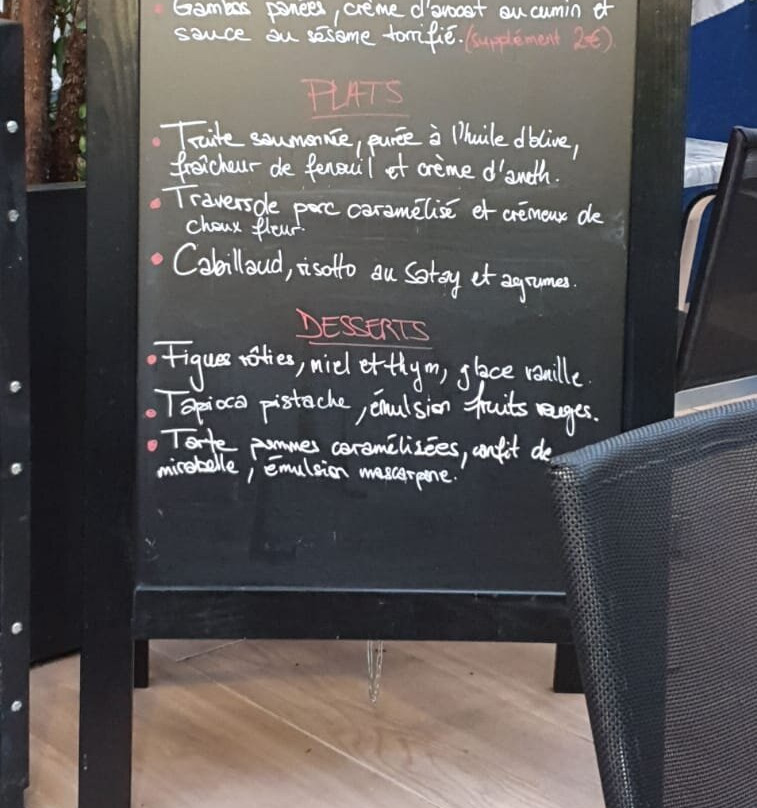 • Gambas panées, crème d'avocat au cumin et
sauce au sésame torrifié. (supplément 2€)
PLATS
• Truite saumonnée, purée à l'huile d'olive,
fraîcheur de fenouil et crème d'aneth.
• Travers de porc caramélisé et crémeux de
choux fleur.
• Cabillaud, risotto au Satay et agrumes.
DESSERTS
• Figues rôties, miel et thym, glace vanille.
• Tapioca pistache, émulsion fruits rouges.
• Tarte pommes caramélisées, confit de
mirabelle, émulsion mascarpone.